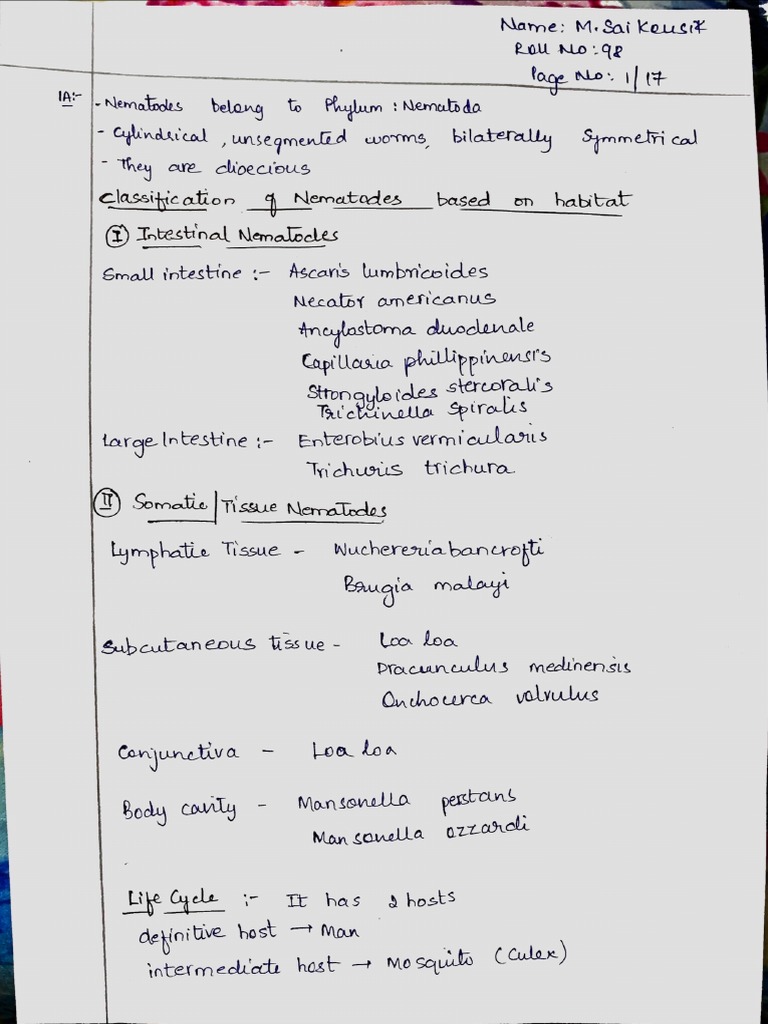 Name: M. Sai Kousik
Roll No: 98
Page No: 1/17
1A:- - Nematodes belong to Phylum: Nematoda
- Cylindrical, unsegmented worms, bilaterally Symmetrical
- They are dioecious
Classification of Nematodes based on habitat
I Intestinal Nematodes
Small intestine :- Ascaris lumbricoides
Necator americanus
Ancylostoma duodenale
Capillaria phillippinensis
Strongyloides stercoralis
Trichinella Spiralis
Large Intestine :- Enterobius vermicularis
Trichuris trichura
II Somatic/Tissue Nematodes
Lymphatic Tissue - Wuchereria bancrofti
Brugia malayi
Subcutaneous tissue - Loa loa
Dracunculus medinensis
Onchocerca volvulus
Conjunctiva - Loa loa
Body cavity - Mansonella perstans
Mansonella ozzardi
Life Cycle :- It has 2 hosts
definitive host → Man
intermediate host → Mosquito (Culex)